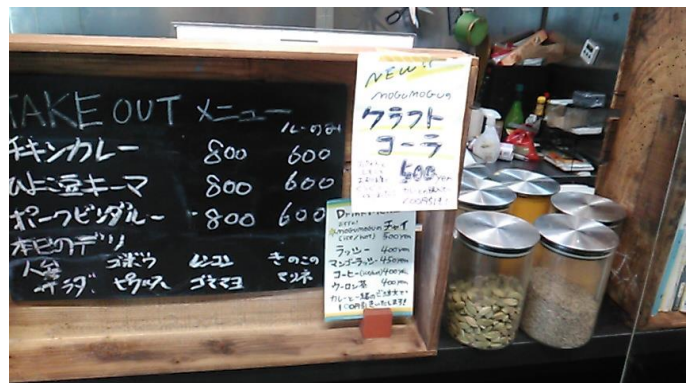 TAKE OUT メニュー
ルーのみ
チキンカレー 800 600
ひよこ豆キーマ 800 600
ポークビンダルー 800 600
本日のデリ
人参 ゴボウ レンコン きのこの
サラダ ピクルス ゴママヨ マリネ
NEW!!
MOGUMOGUの
クラフト
コーラ
500yen
DRINK MENU
MOGUMOGUの チャイ
(ICE/HOT) 500yen
ラッシー 400yen
マンゴーラッシー 450yen
コーヒー 400yen
ウーロン茶 400yen
カレーと一緒のご注文で
100円引きいたします!